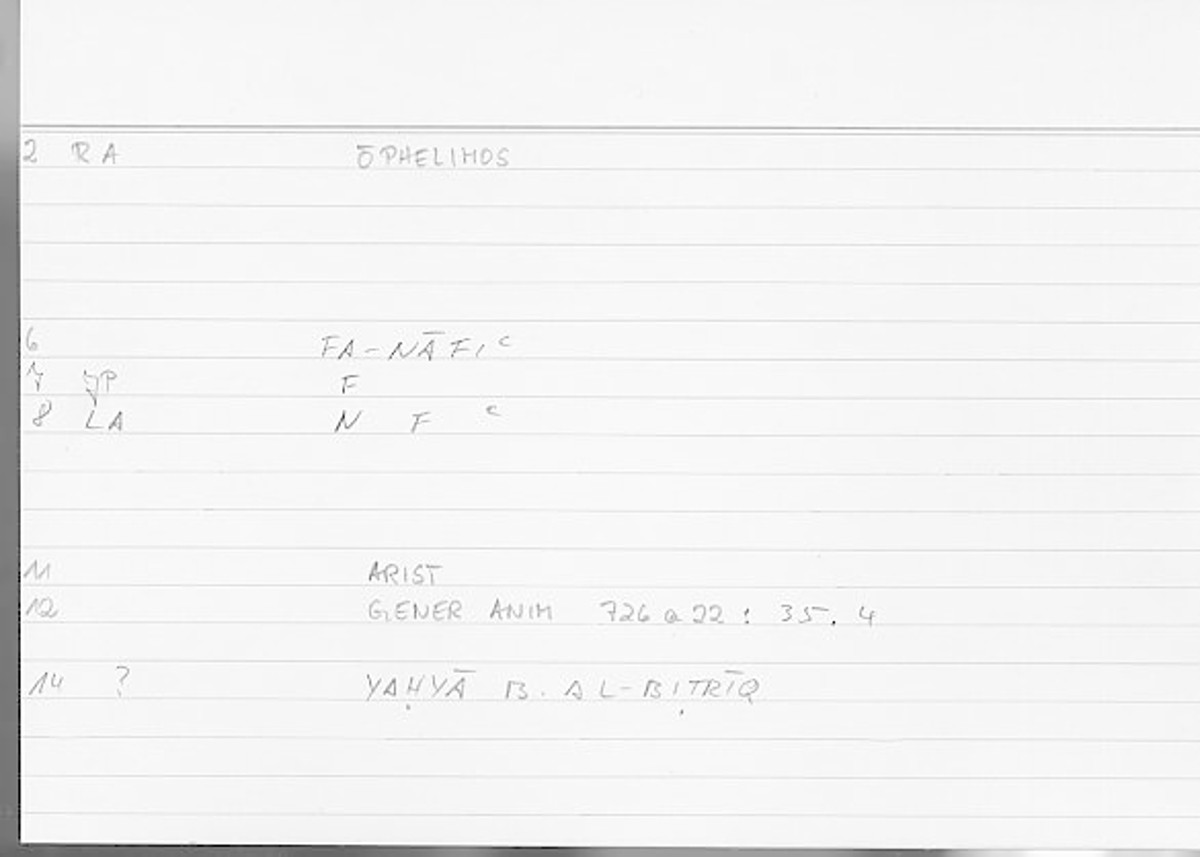 2 RA ŌPHELIMOS
6 FA-NĀFIᶜ
7 JP F
8 LA N F ᶜ
11 ARIST
12 GENER ANIM 726 a 22 : 35. 4
14 ? YAḤYĀ B. AL-BIṬRĪQ